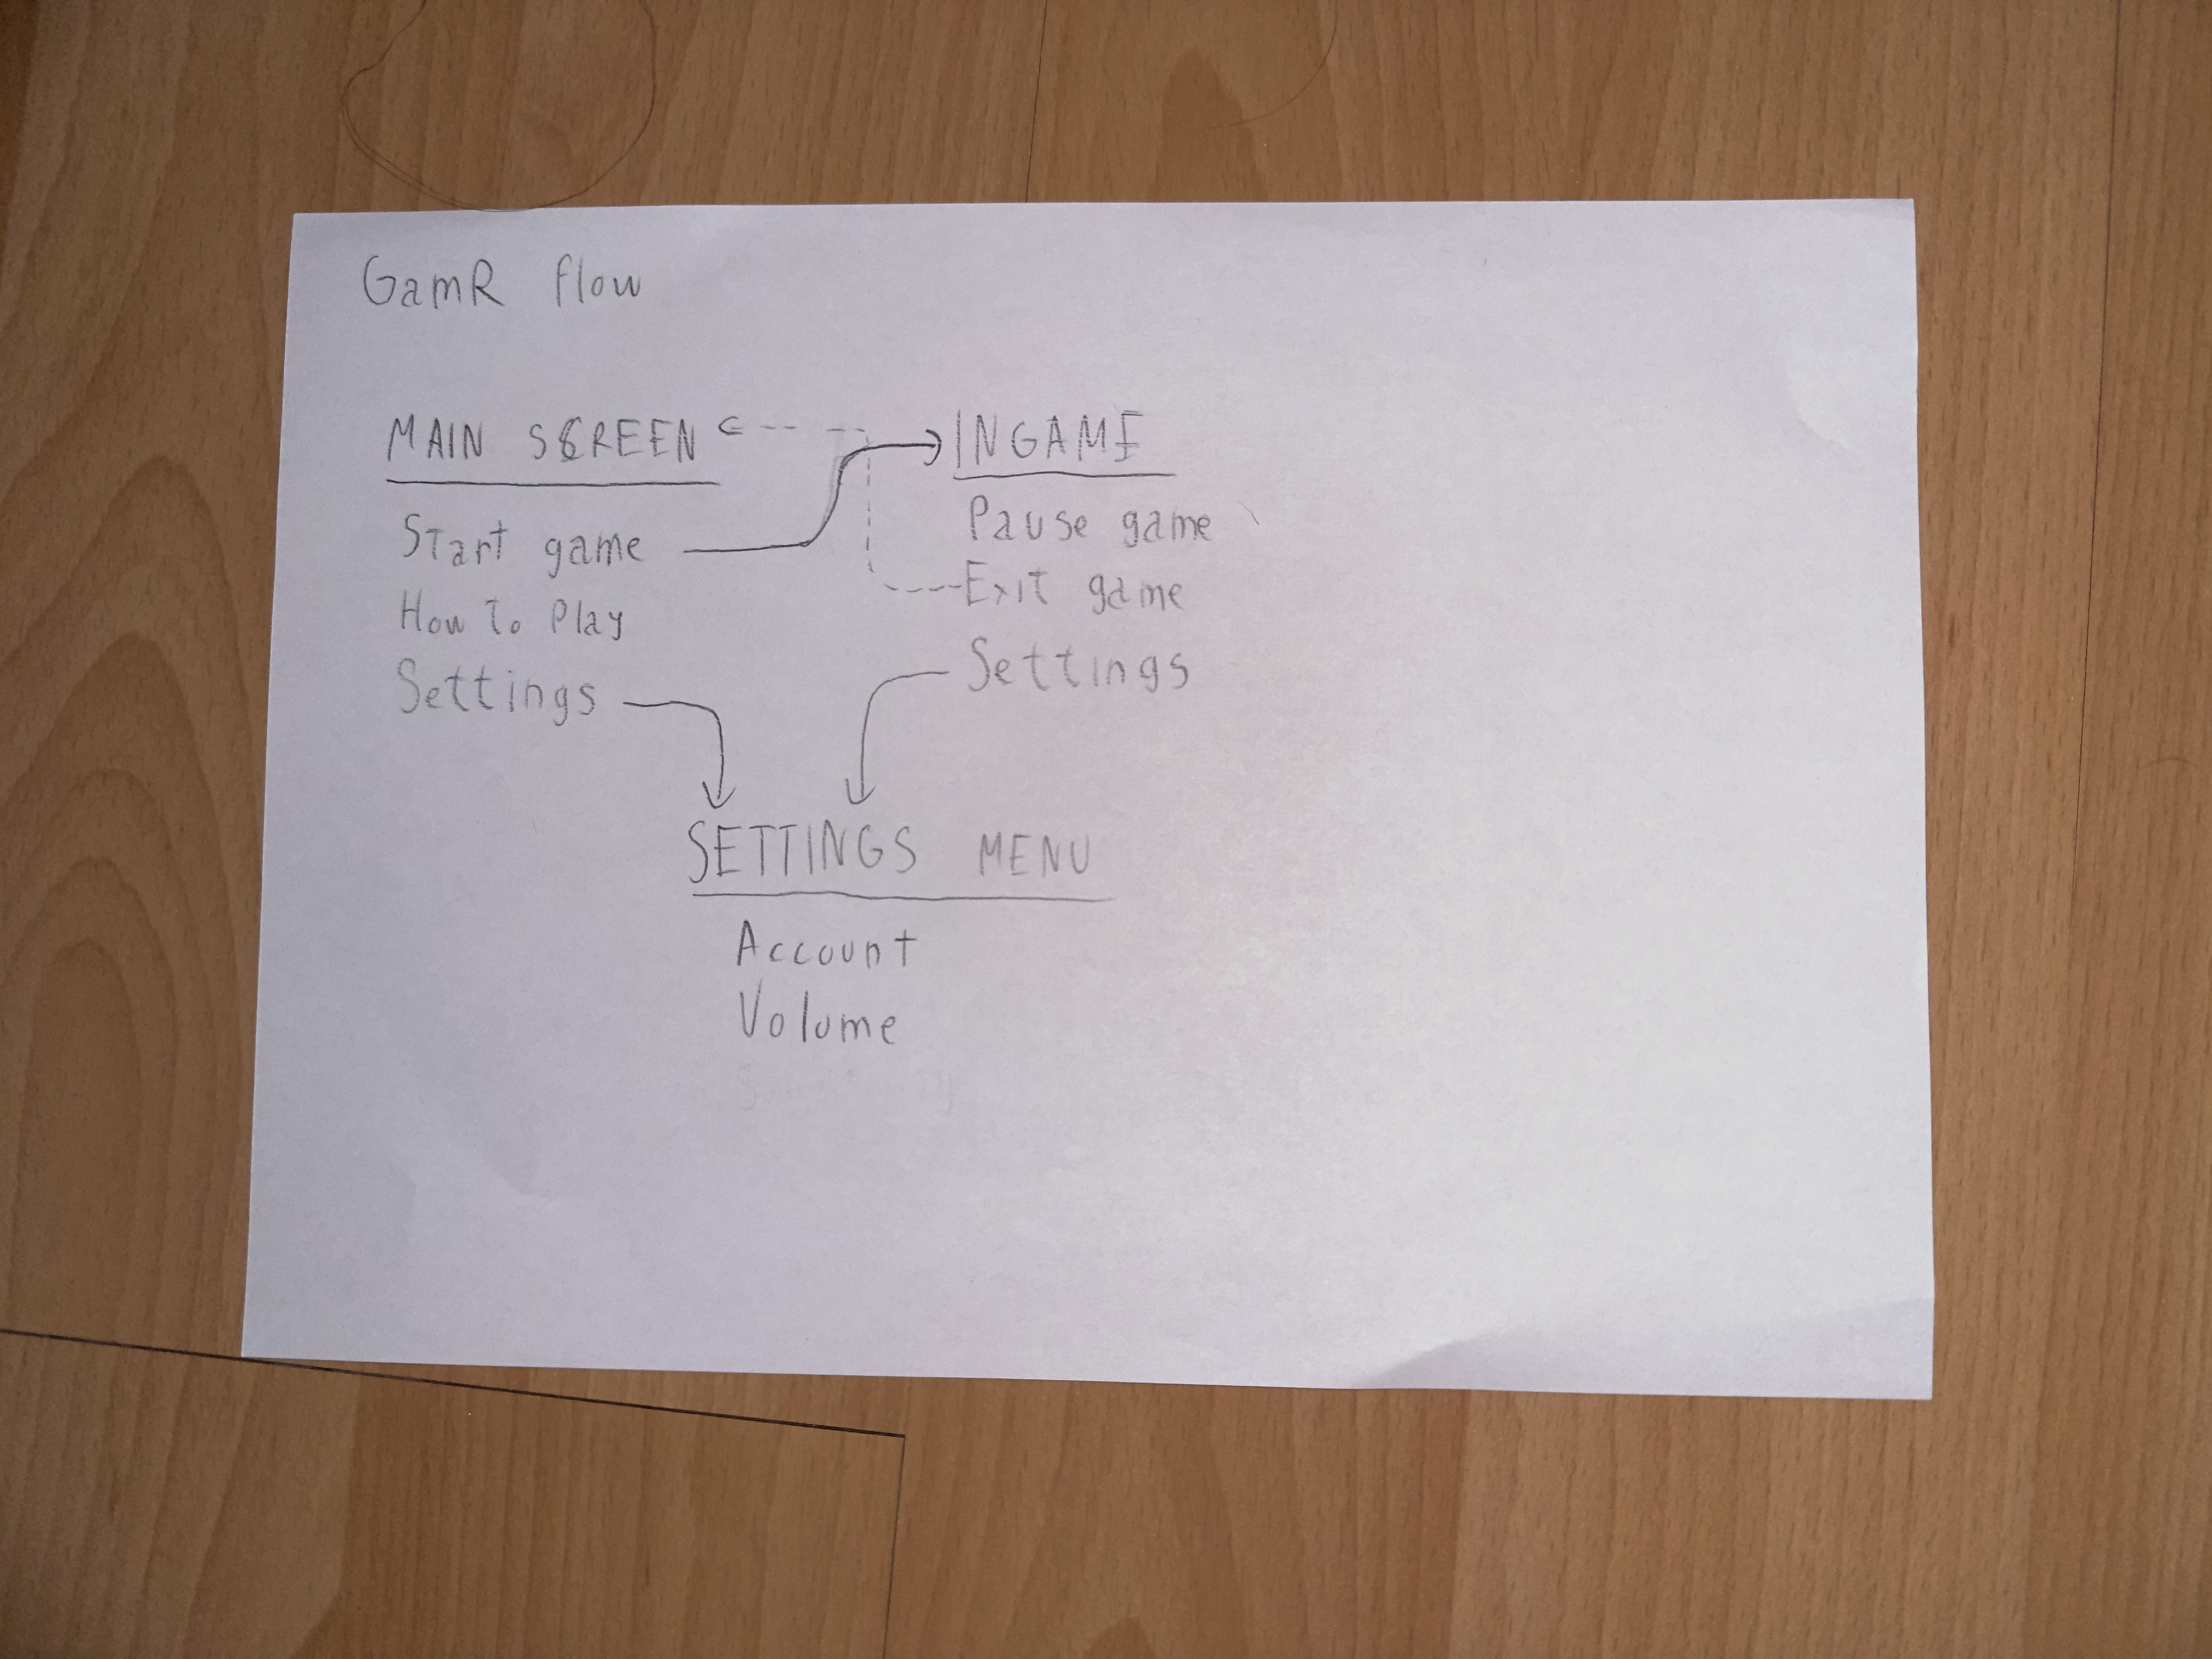 GamR flow
MAIN SCREEN
Start game
How To Play
Settings
INGAME
Pause game
Exit game
Settings
SETTINGS MENU
Account
Volume